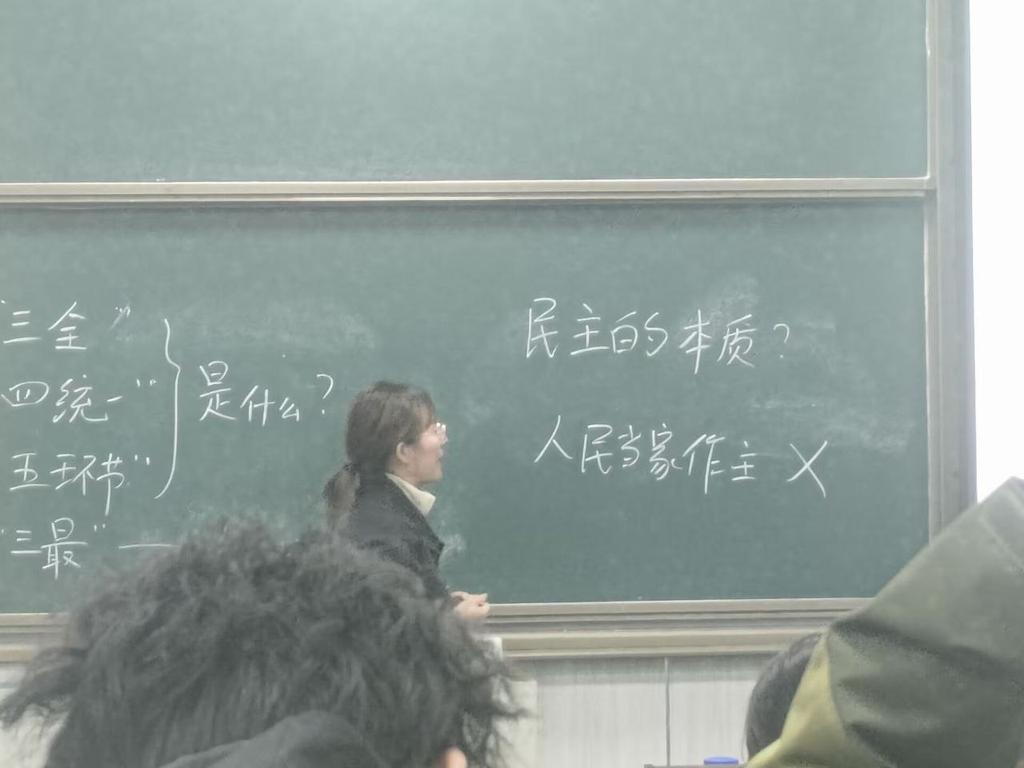 "三全"
四统一"
五环节"
"三最" —
是什么?
民主的本质?
人民当家作主 X